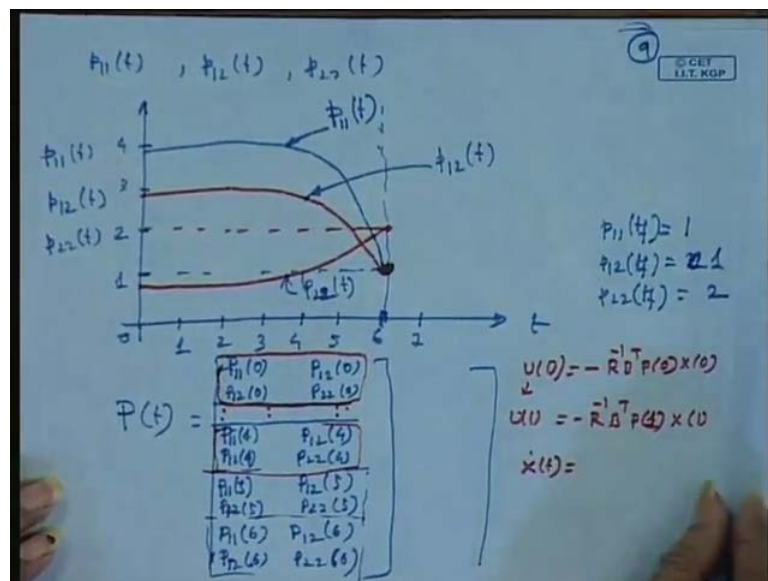 9
© CET
I.I.T. KGP
p₁₁(t) , p₁₂(t) , p₂₂(t)
p₁₁(t)
p₁₂(t)
p₁₁(t) 4
p₁₂(t) 3
p₂₂(t) 2
1
p₂₂(t)
0 1 2 3 4 5 6 7 t
p₁₁(tf) = 1
p₁₂(tf) = 1
p₂₂(tf) = 2
P(t) =
P₁₁(0) P₁₂(0)
P₁₂(0) P₂₂(0)
⋮ ⋮
P₁₁(4) P₁₂(4)
P₁₂(4) P₂₂(4)
P₁₁(5) P₁₂(5)
P₁₂(5) P₂₂(5)
P₁₁(6) P₁₂(6)
P₁₂(6) P₂₂(6)
u(0) = - R⁻¹ B^T P(0) x(0)
u(1) = - R⁻¹ B^T P(1) x(1)
ẋ(t) =